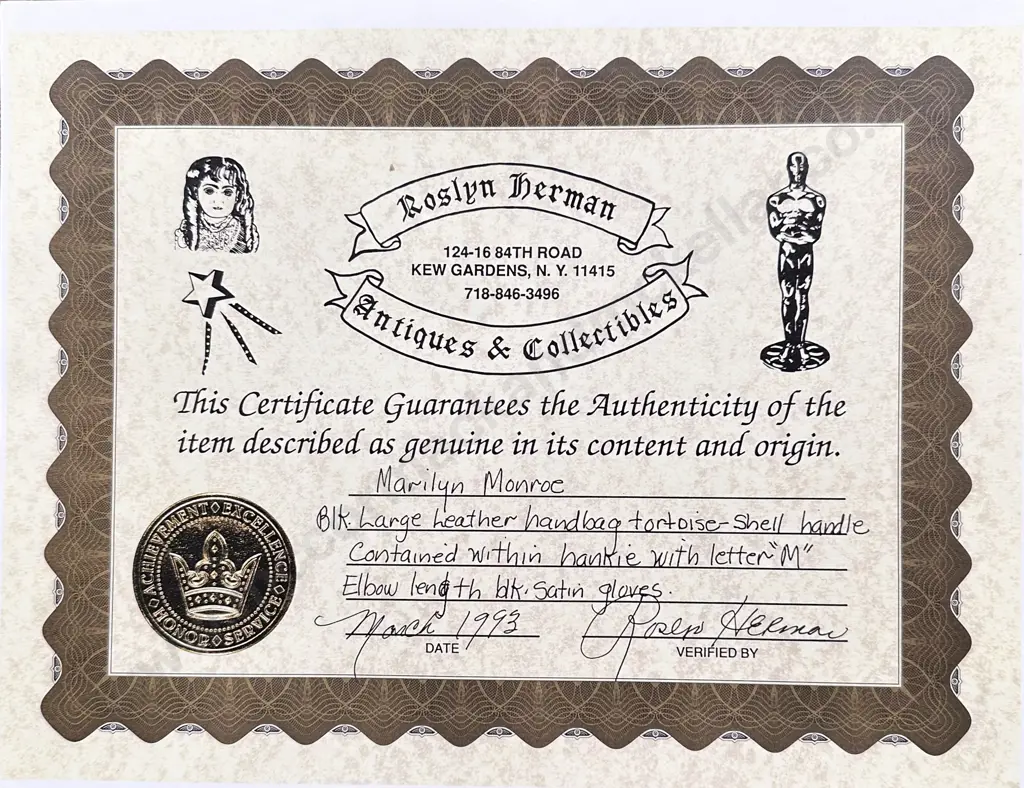 Roslyn Herman
124-16 84TH ROAD
KEW GARDENS, N. Y. 11415
718-846-3496
Antiques & Collectibles
This Certificate Guarantees the Authenticity of the
item described as genuine in its content and origin.
Marilyn Monroe
Blk. Large leather handbag tortoise-shell handle
Contained within hankie with letter "M"
Elbow length blk. Satin gloves.
March 1993
Roslyn Herman
DATE
VERIFIED BY
ACHIEVEMENT EXCELLENCE
HONOR SERVICE